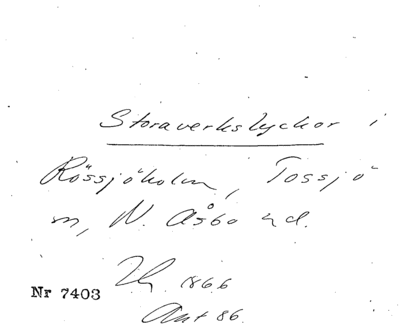 Storaverkslyckor i
Rössjöholm, Tossjö
m, N. Åsbo hd.
1866
Nr 7403
Akt 86.